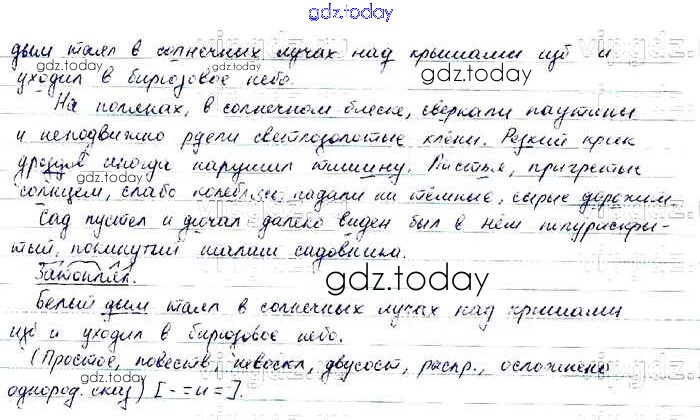 gdz.today
дым таял в солнечных лучах над крышами изб и
gdz.today
уходил в бирюзовое небо.
На полянах, в солнечном блеске, сверкали паутины
gdz.today
и неподвижно рдели светлозолотые клёны. Резкий крик
дроздов иногда нарушал тишину. Листья, пригретые
gdz.today
солнцем, слабо колеблясь, падали на тёмные, сырые дорожки.
Сад пустел и дичал далеко виден был в нём полураскры-
тый, покинутый шалаш садовника.
gdz.today
Затоплял.
gdz.today
Белый дым таял в солнечных лучах над крышами
изб и уходил в бирюзовое небо.
(Простое, повеств., невоскл., двусост., распр., осложнено
gdz.today
gdz.today
однород. сказ) [- = и =].